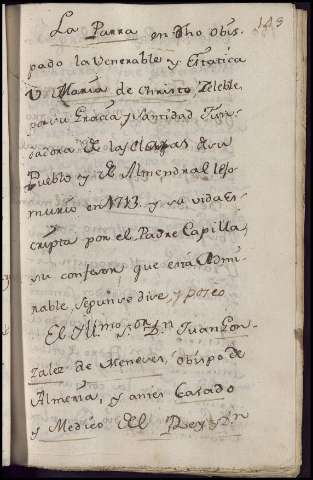 143
La Parra en dho obis-
pado la Venerable y Estatica
V. Maria de Christo Zeleble
por su Gracia y Santidad Fun-
dadora de las Claras de su
Pueblo y de Almendral
murio en 1713 y su vida es-
cripta por el Padre Capilla,
su confesor que está Admi-
rable, segun se dize, y poseo
El Yllmo. Sor. Dn Juan Gon-
zalez de Meneses, obispo de
Almeria, y antes Casado
y Medico del Rey Dn